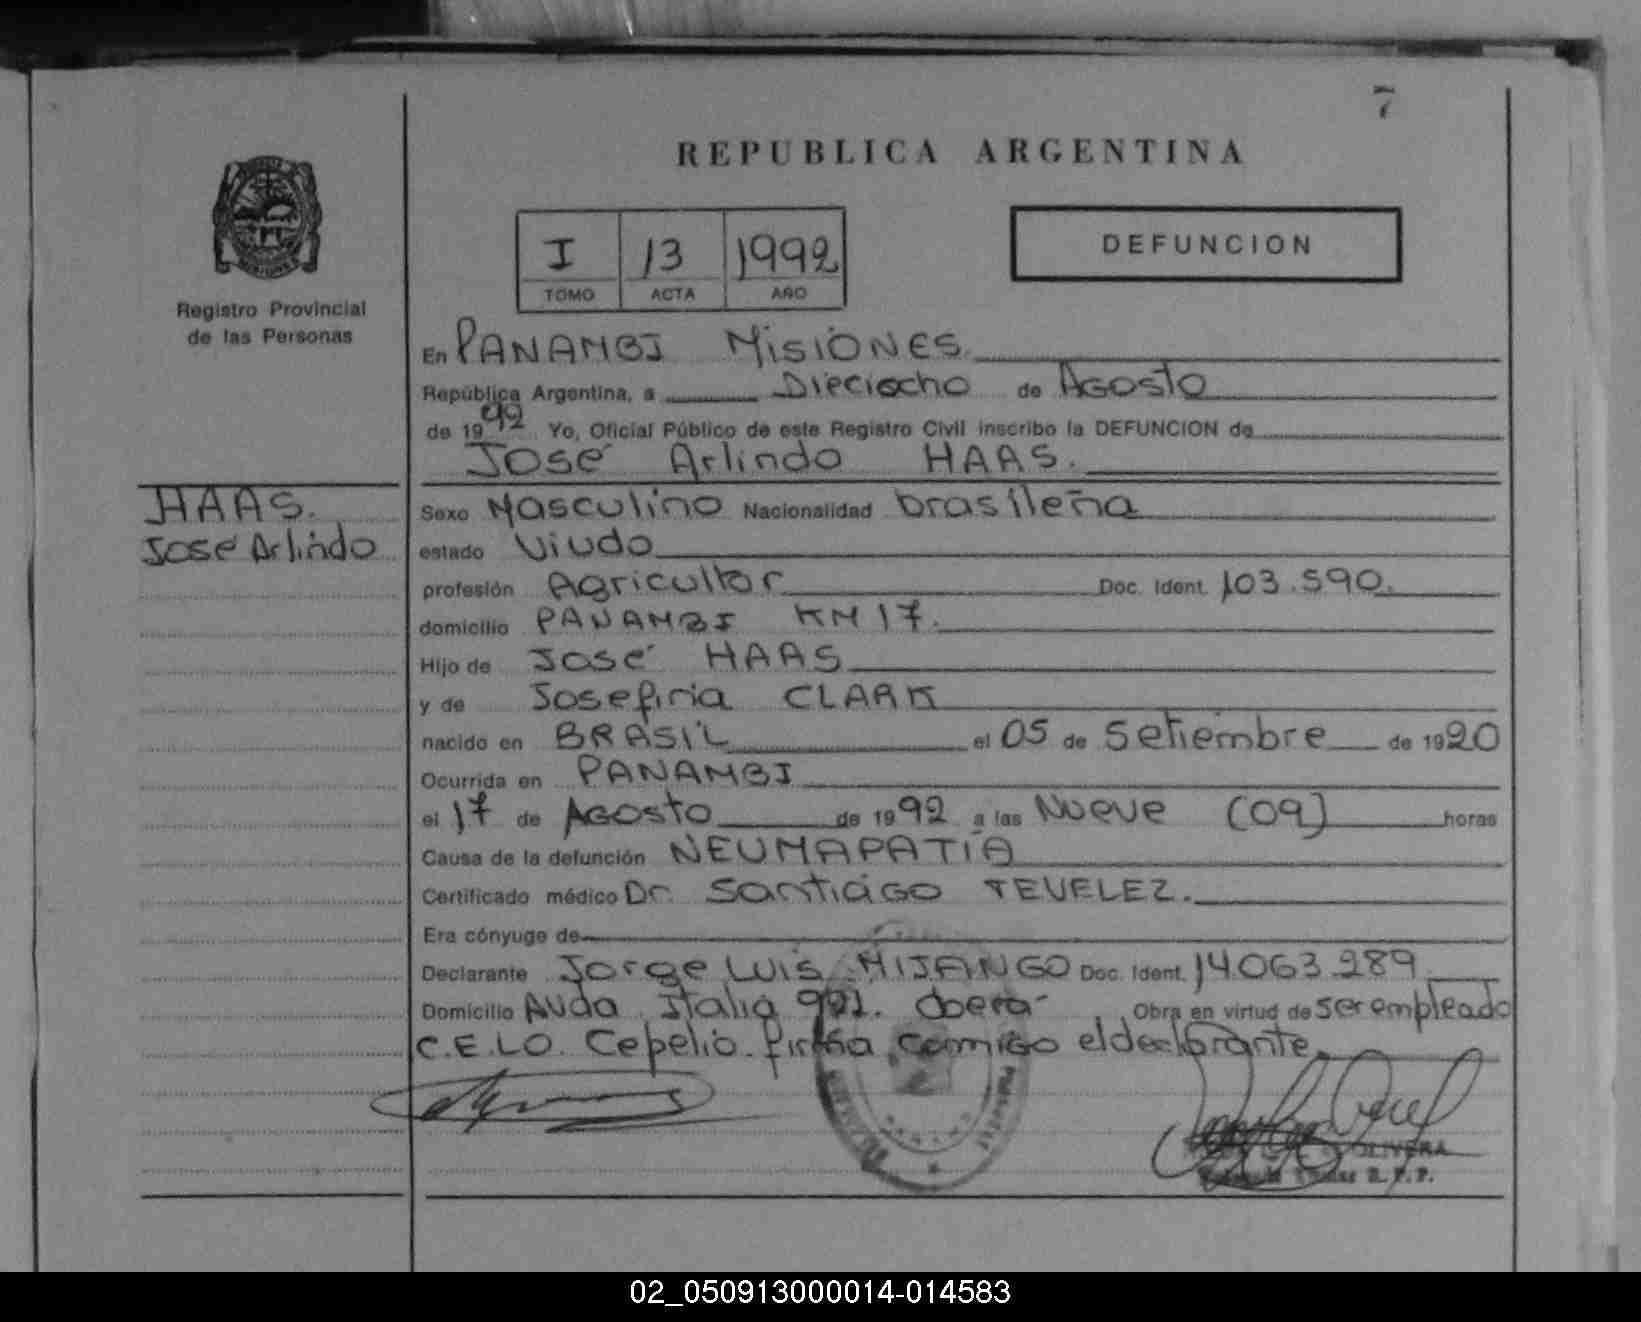 7
REPUBLICA ARGENTINA
I 13 1992
TOMO ACTA AÑO
DEFUNCION
MISIONES
Registro Provincial
de las Personas
En PANAMBI MISIONES
República Argentina, a Dieciocho de Agosto
de 1992 Yo, Oficial Público de este Registro Civil inscribo la DEFUNCION de
José Arlindo HAAS.
HAAS.
José Arlindo
Sexo Masculino Nacionalidad brasileña
estado Viudo
profesión Agricultor Doc. Ident. 103.590.
domicilio PANAMBI KM 17.
Hijo de José HAAS
y de Josefina CLARK
nacido en BRASIL el 05 de Setiembre de 1920
Ocurrida en PANAMBI
el 17 de Agosto de 1992 a las Nueve (09) horas
Causa de la defunción NEUMAPATÍA
Certificado médico Dr. Santiago TEVELEZ.
Era cónyuge de
Declarante Jorge Luis MIJANGO Doc. Ident. 14.063.289
Domicilio Avda. Italia Oberá Obra en virtud de ser empleado
C.E.L.O. Cepelio. firma conmigo el declarante.
OLIVERA
R.P.P.
02_050913000014-014583